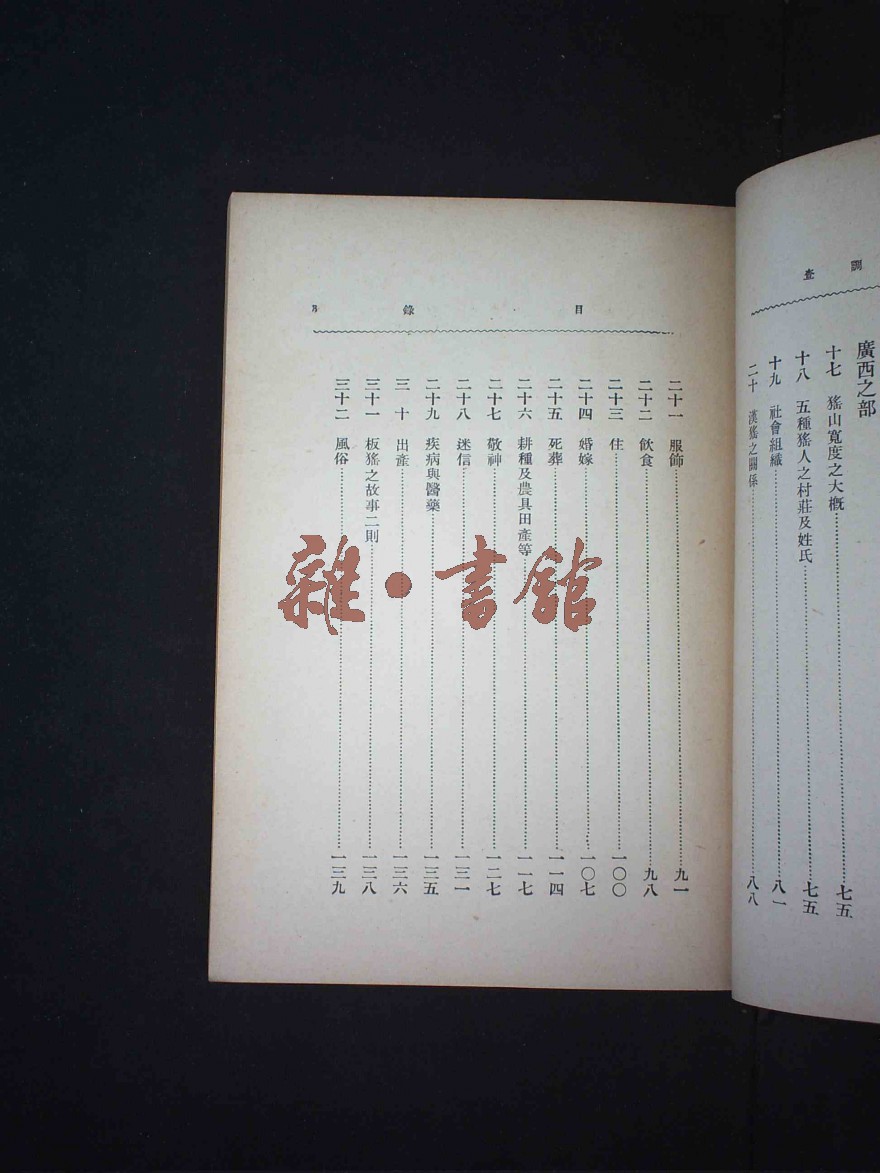 調查
廣西之部
十七 猺山寬度之大概 七五
十八 五種猺人之村莊及姓氏 七五
十九 社會組織 八一
二十 漢猺之關係 八八
目錄
二十一 服飾 九一
二十二 飲食 九八
二十三 住 一〇〇
二十四 婚嫁 一〇七
二十五 死葬 一一四
二十六 耕種及農具田產等 一一七
二十七 敬神 一二七
二十八 迷信 一三一
二十九 疾病與醫藥 一三五
三十 出產 一三六
三十一 板猺之故事二則 一三八
三十二 風俗 一三九
雜·書館